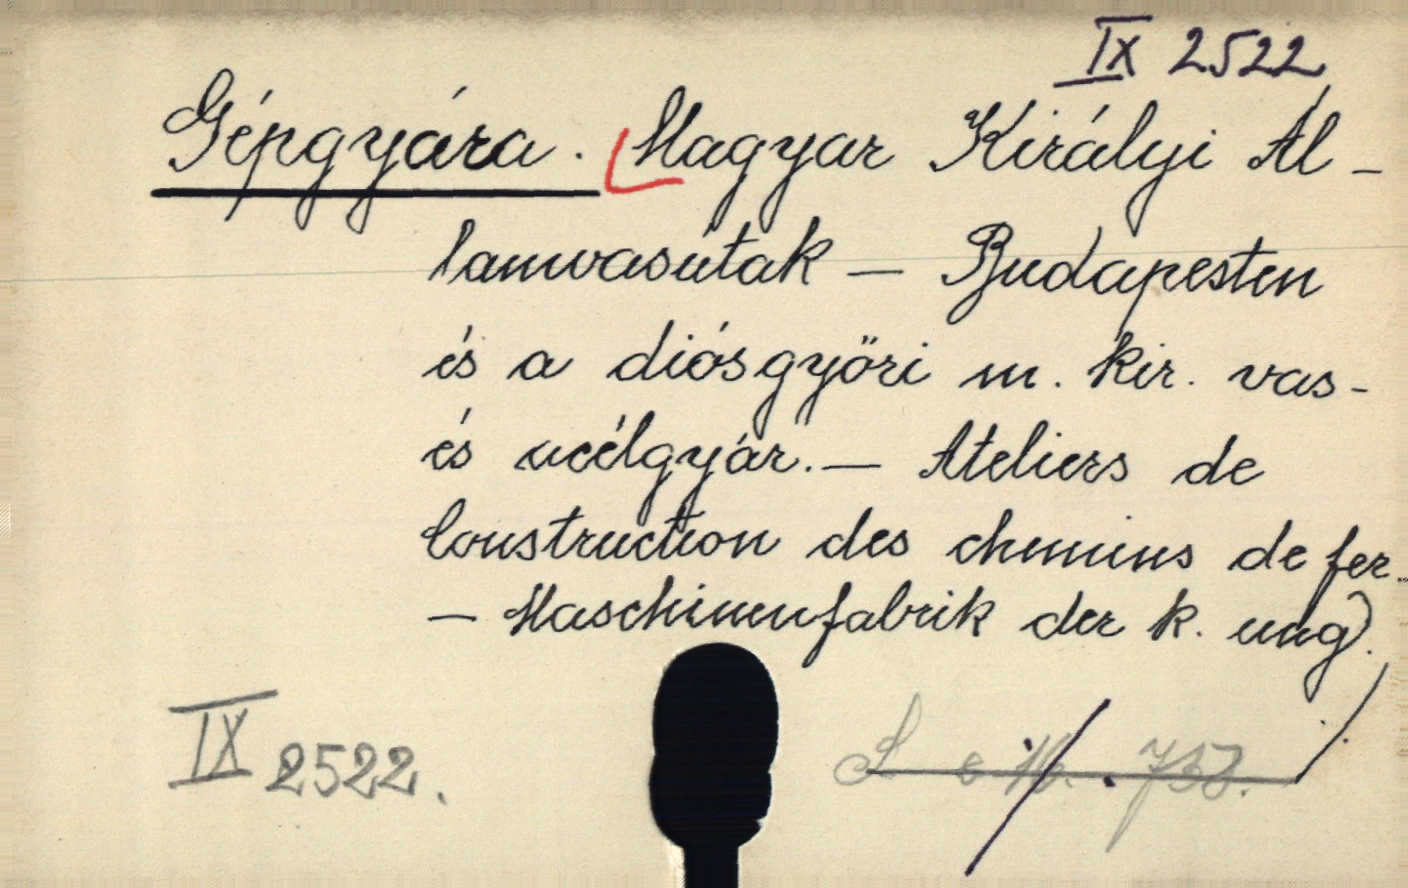 IX 2522
Gépgyára. Magyar Királyi Ál-
lamvasútak — Budapesten
és a diósgyőri m. kir. vas-
és acélgyár. — Ateliers de
Construction des chemins de fer.
— Maschinenfabrik der k. ung.
IX 2522.